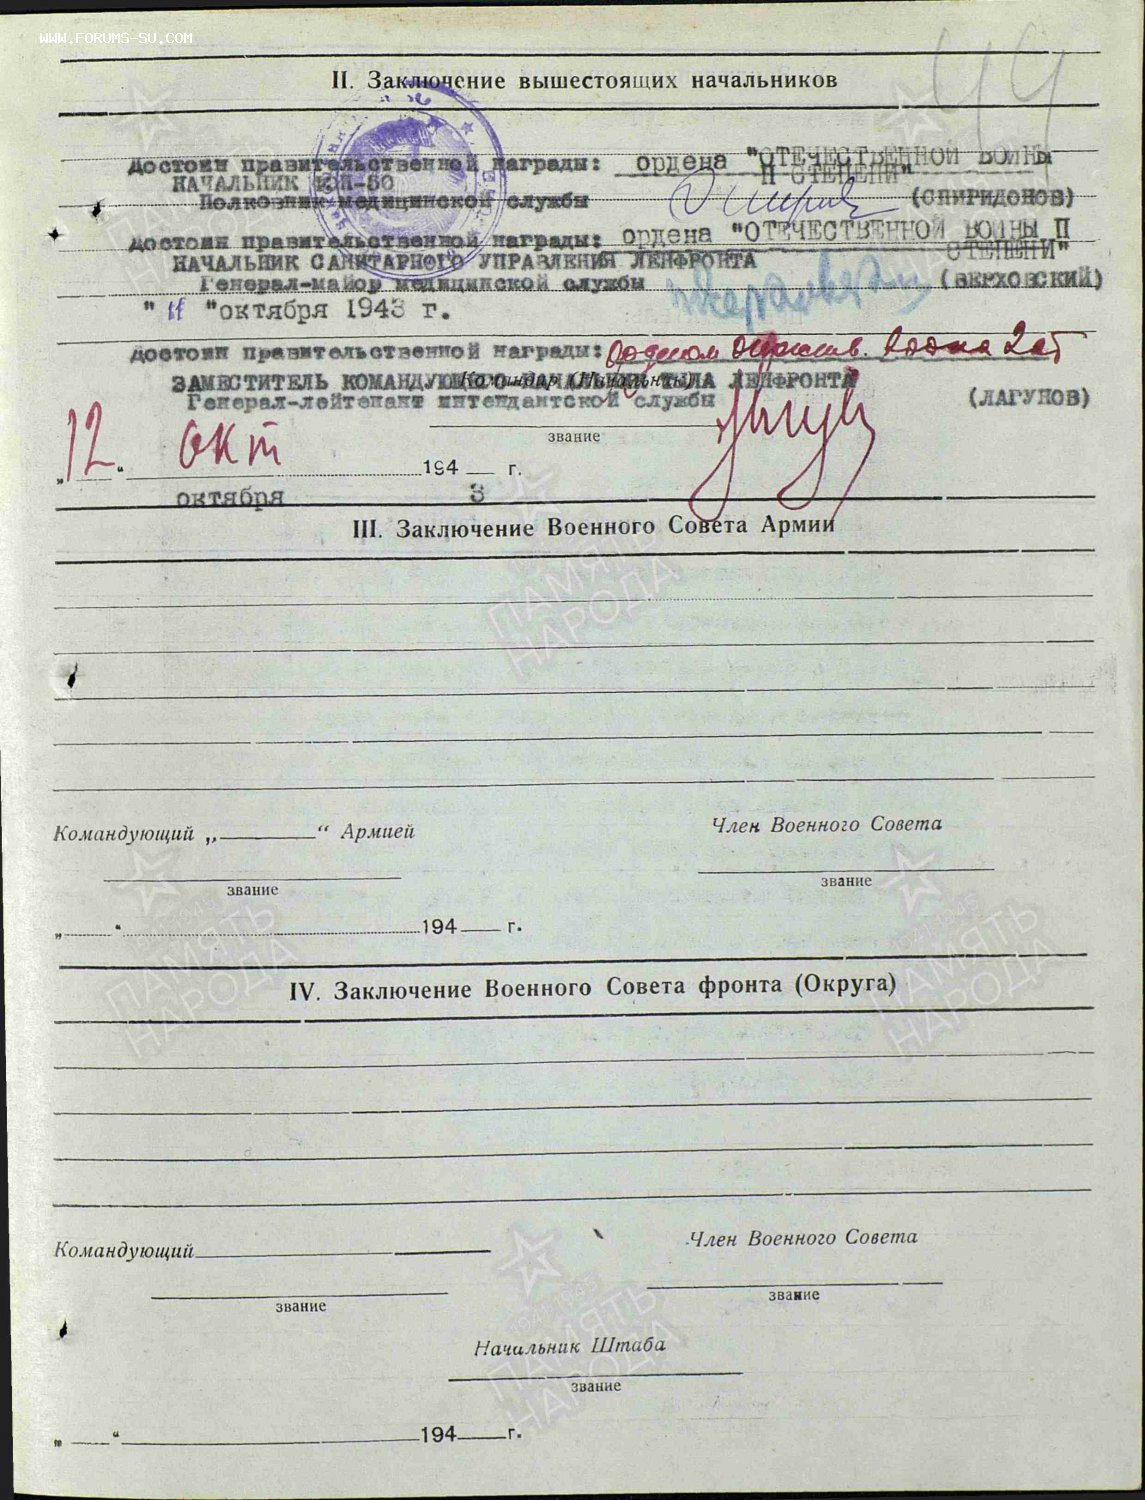 WWW.FORUMS-SU.COM
44
II. Заключение вышестоящих начальников
Достоин правительственной награды: ордена "ОТЕЧЕСТВЕННОЙ ВОЙНЫ
II СТЕПЕНИ"
НАЧАЛЬНИК ФЭП-50
Полковник медицинской службы (СПИРИДОНОВ)
Достоин правительственной награды: ордена "ОТЕЧЕСТВЕННОЙ ВОЙНЫ П
СТЕПЕНИ"
НАЧАЛЬНИК САНИТАРНОГО УПРАВЛЕНИЯ ЛЕНФРОНТА
Генерал-майор медицинской службы (ВЕРХОВСКИЙ)
" 11 "октября 1943 г.
Достоин правительственной награды: 2 ст
Командир (Начальник)
ЗАМЕСТИТЕЛЬ КОМАНДУЮЩЕГО-НАЧАЛЬНИК ТЫЛА ЛЕНФРОНТА
Генерал-лейтенант интендантской службы (ЛАГУНОВ)
звание
„12“ окт 194 г.
октября 3
III. Заключение Военного Совета Армии
Командующий „ “ Армией Член Военного Совета
звание звание
„ “ 194 г.
IV. Заключение Военного Совета фронта (Округа)
Командующий Член Военного Совета
звание звание
Начальник Штаба
звание
„ “ 194 г.
ПАМЯТЬ
НАРОДА